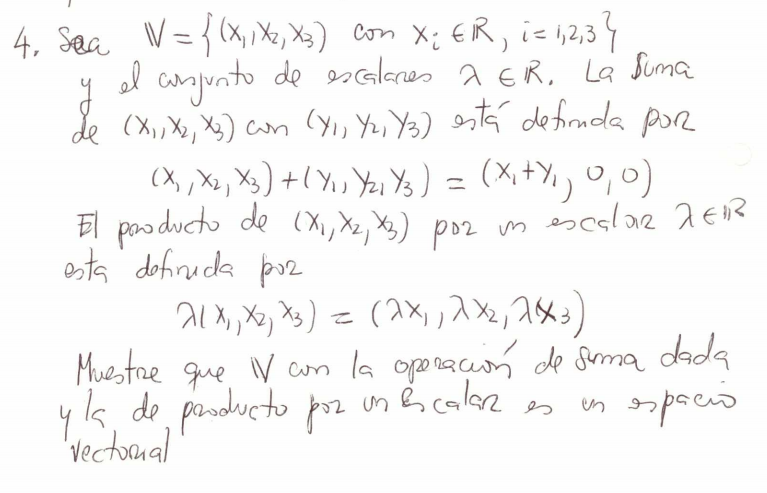 4. Sea V = {(x₁, x₂, x₃) con xᵢ ∈ ℝ, i = 1,2,3}
y el conjunto de escalares λ ∈ ℝ. La suma
de (x₁, x₂, x₃) con (y₁, y₂, y₃) está definida por
(x₁, x₂, x₃) + (y₁, y₂, y₃) = (x₁+y₁, 0, 0)
El producto de (x₁, x₂, x₃) por un escalar λ ∈ ℝ
esta definida por
λ(x₁, x₂, x₃) = (λx₁, λx₂, λx₃)
Muestre que V con la operación de suma dada
y la de producto por un escalar es un espacio
vectorial